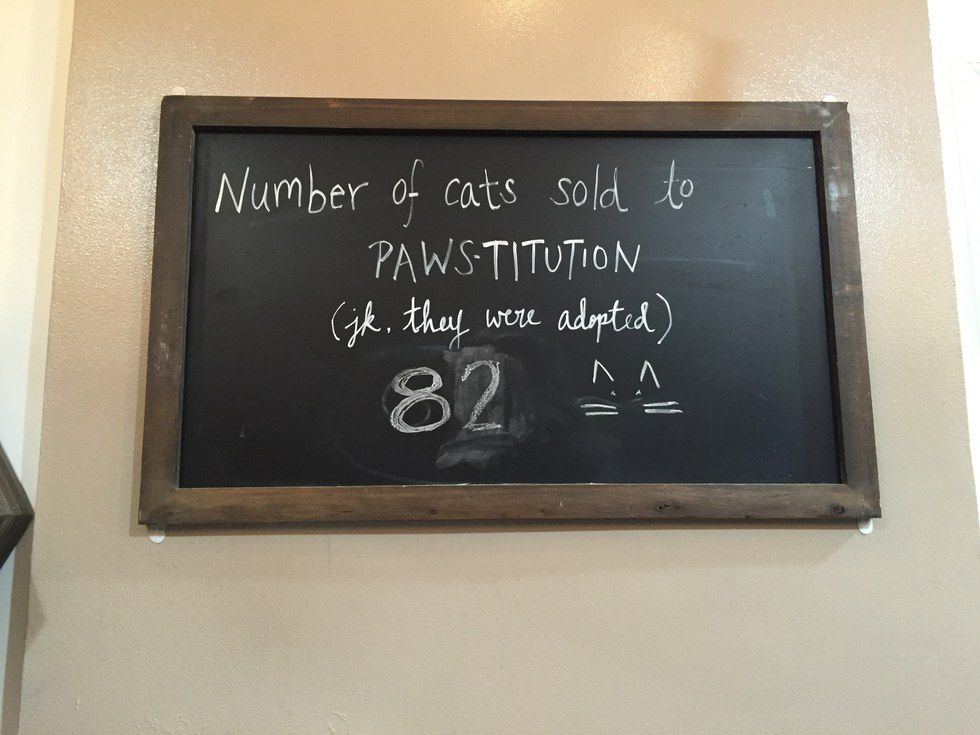 Number of cats sold to
PAWS-TITUTION
(jk, they were adopted)
82 ^ ^